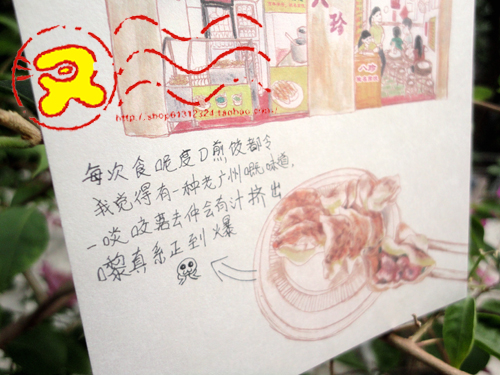 八珍
八珍
http://shop61312324.taobao.com/
每次食呢度D煎饺都令
我觉得有一种老广州嘅味道,
一啖咬落去仲会有汁挤出
嚟真系正到爆